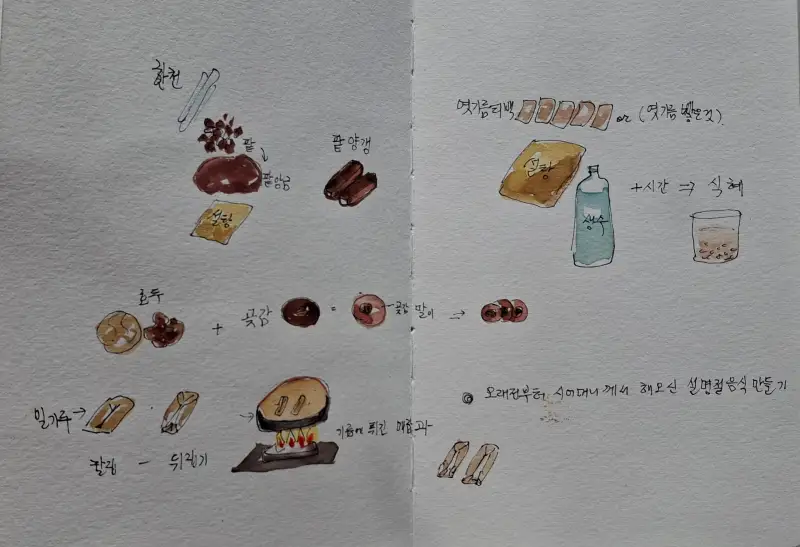 한천
팥
팥앙금
설탕
팥양갱
엿기름티백 or (엿기름 빻은것).
설탕
생수
+시간 ⇒ 식혜
호두
+ 곶감 = 곶감 말이 →
밀가루→
칼집 - 뒤집기
→ 기름에 튀긴 매잡과
◎ 오래전부터 시어머니께서 해오신 설명절음식 만들기